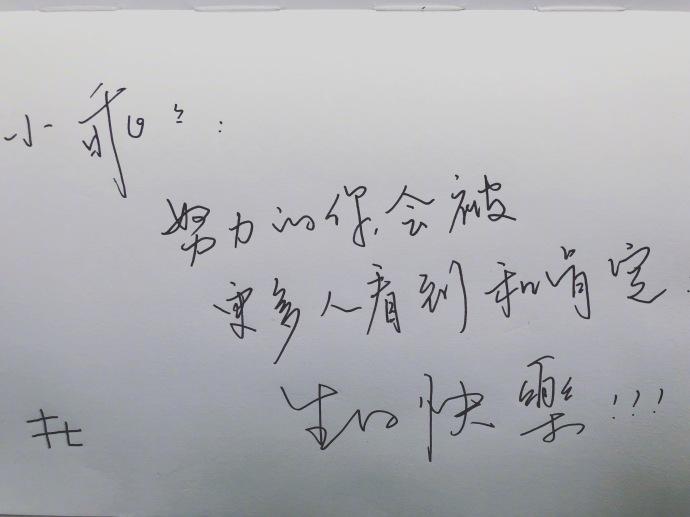 小乖：
努力的你，会被
更多人看到和肯定．
生日快樂!!!